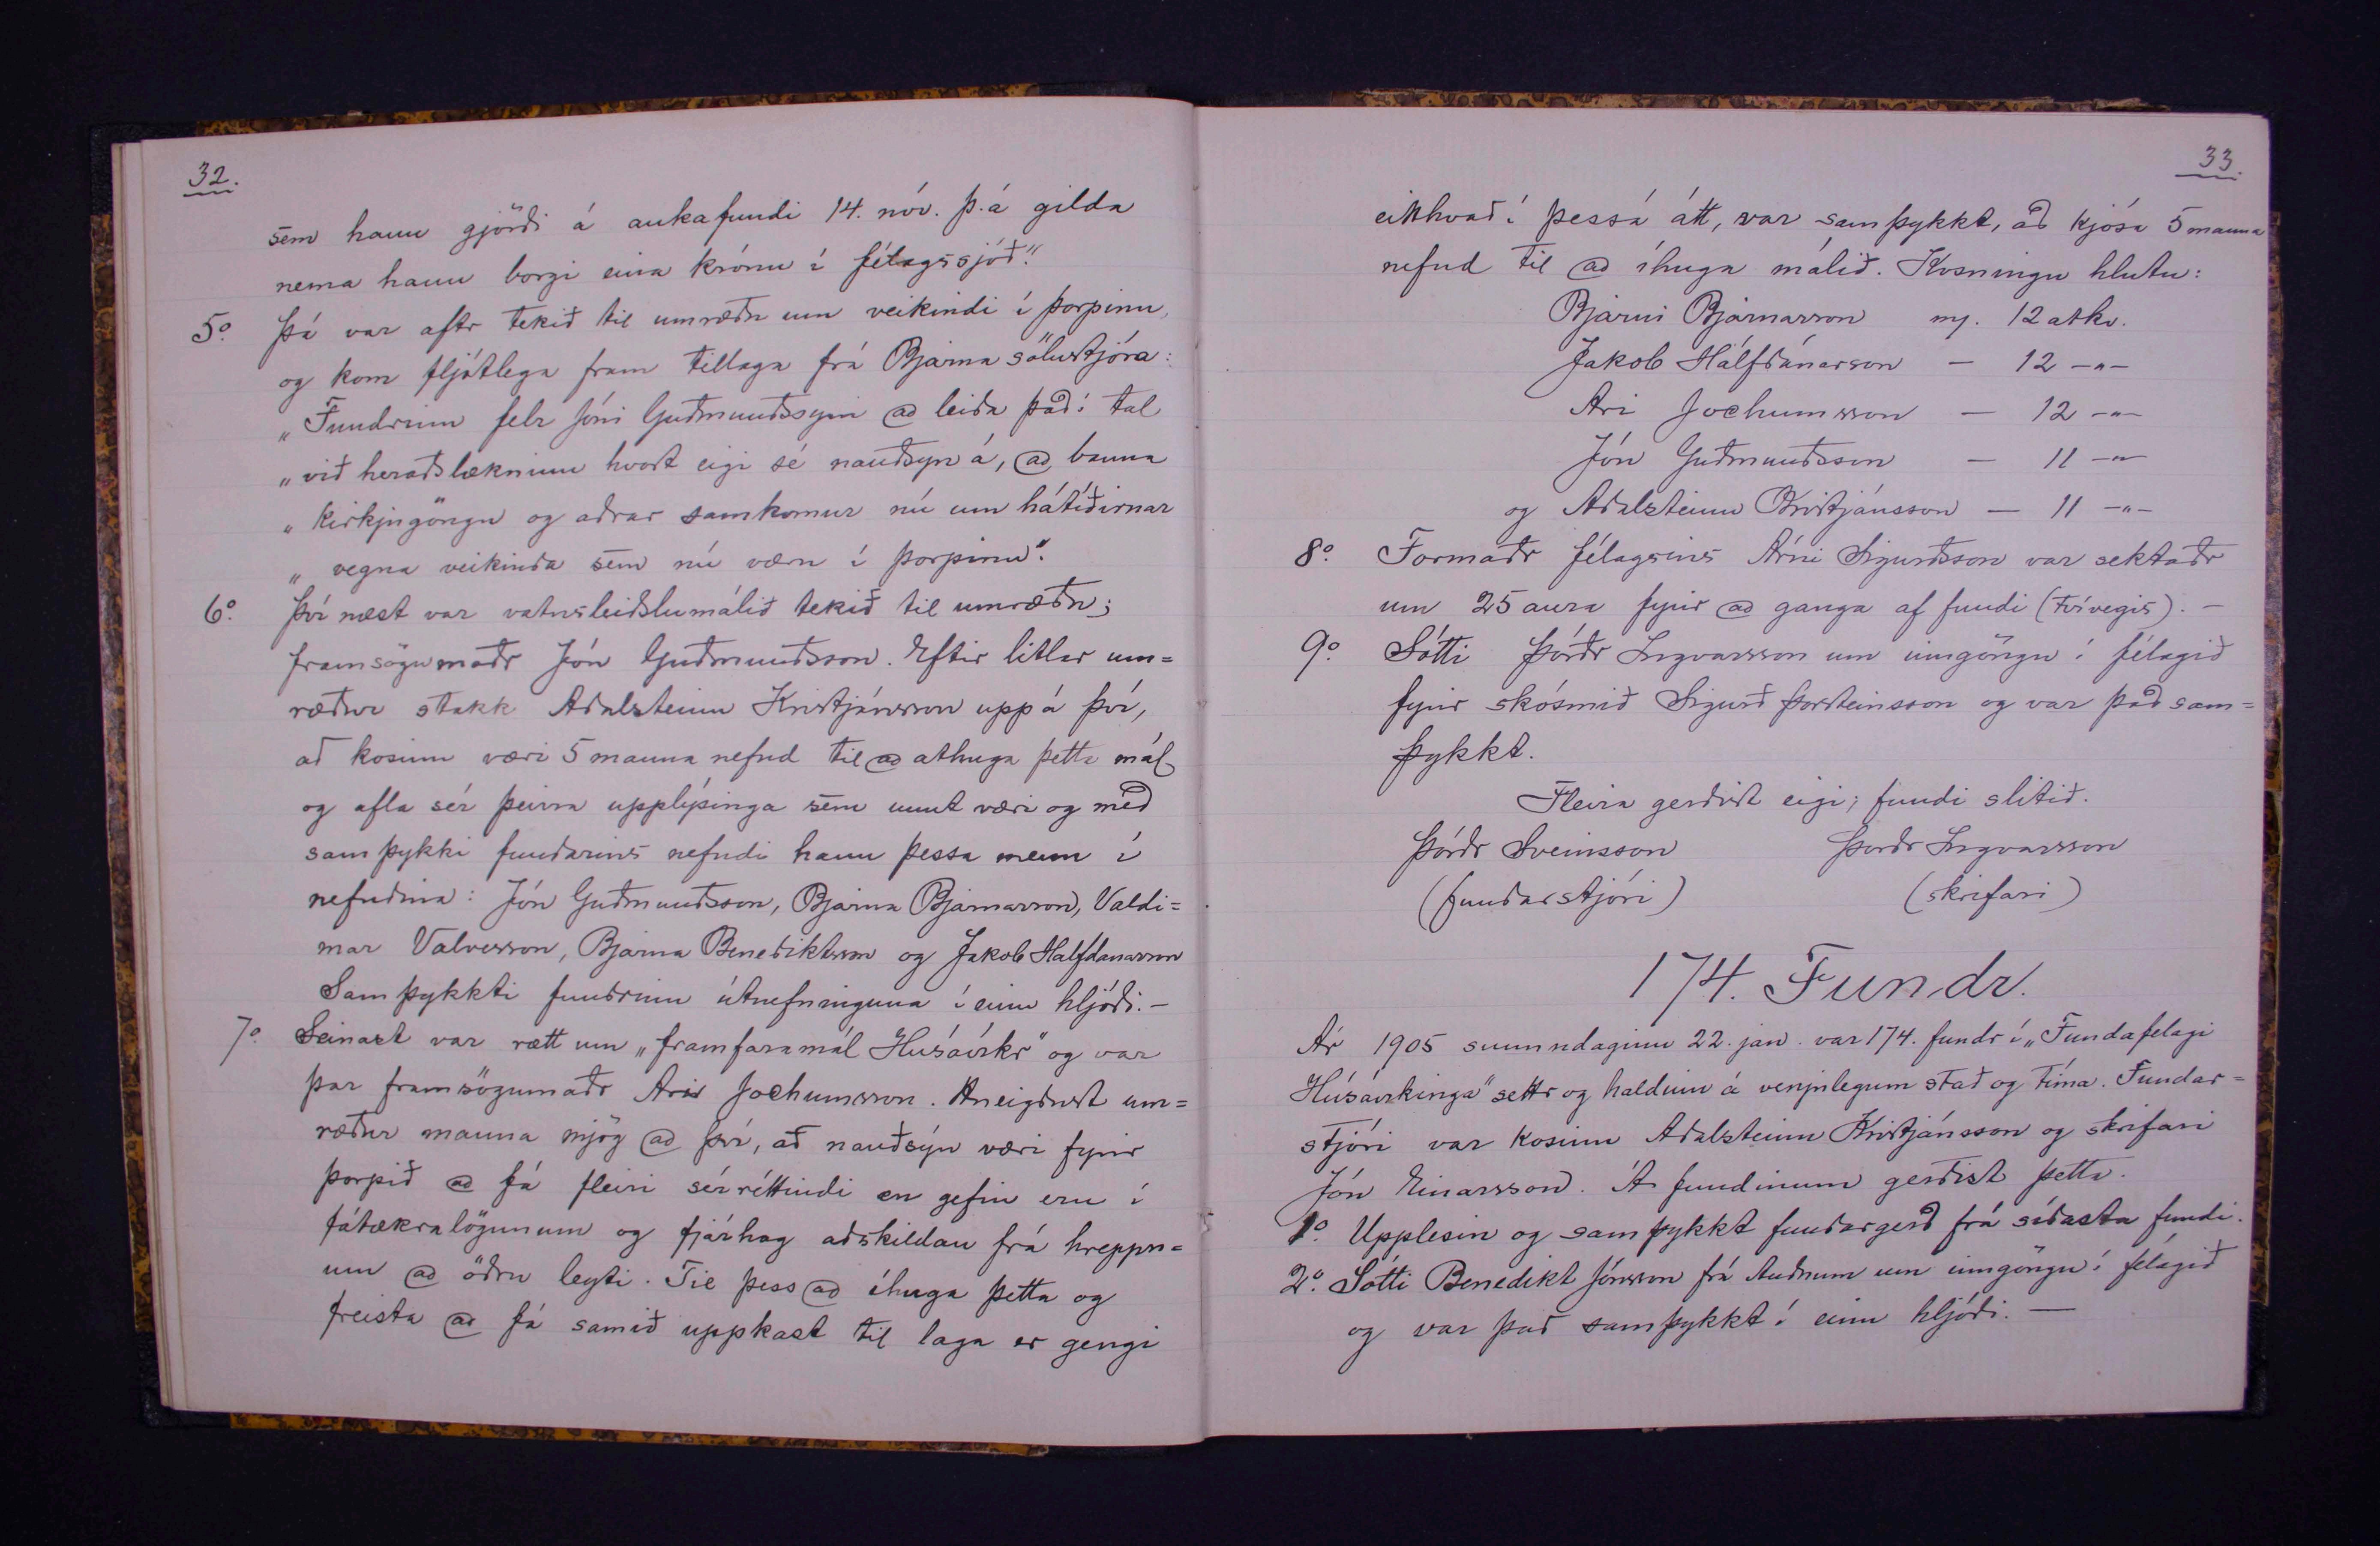 32.
sem hann gjörði á aukafundi 14. nóv. þ.á gilda
nema hann borgi eina krónu í félagssjóð."
5° Þá var aftr tekið til umræðu um veikindi í þorpinu,
og kom fljótlega fram tillaga frá Bjarna sölustjóra:
„Fundrinn felr Jóni Guðmundssyni @ leiða það í tal
„við heraðslækninn hvort eigi sé nauðsyn á, @ banna
„kirkjugöngu og aðrar samkomur nú um hátíðirnar
„vegna veikinda sem nú væru í þorpinu".
6° Því næst var vatnsleiðslumálið tekið til umræðu;
framsögumaðr Jón Guðmundsson. Eftir litlar um=
ræður stakk Aðalsteinn Kristjánsson upp á því,
að kosinn væri 5 manna nefnd til @ athuga þetta mál
og afla sér þeirra upplýsinga sem unnt væri og með
samþykki fundarins nefndi hann þessa menn í
nefndina: Jón Guðmundsson, Bjarna Bjarnarson, Valdi=
mar Valvesson, Bjarna Benediktsson og Jakob Halfdanarson
Samþykkti fundrinn útnefninguna í einu hljóði.-
7° Seinast var rætt um „framfaramál Húsavíkr" og var
þar framsögumaðr Ari Jochumsson. Hneigðust um=
ræður manna mjög @ því, að nauðsýn væri fyrir
þorpið @ fá fleiri sérréttindi en gefin eru í
fátækralögunum og fjárhag aðskildan frá hreppn=
um @ öðru leyti. Til þess @ íhuga þetta og
freista @ fá samið uppkast til laga er gengi
33.
eitthvað í þessá átt, var samþykkt, að kjósa 5 manna
nefnd til @ íhuga málið. Kosningu hlutu:
Bjarni Bjarnarson m/. 12 atkv.
Jakob Hálfdánarson — 12 -"-
Ari Jochumsson — 12 -"-
Jón Guðmundsson — 11 -"-
og Aðalsteinn Kristjánsson — 11 -"-
8° Formaðr félagsins Árni Sigurðsson var sektaðr
um 25 aura fyrir @ ganga af fundi (tvívegis). -
9° Sótti Þórðr Ingvarsson um inngöngu í félagið
fyrir skósmið Sigurð Þorsteinsson og var það sam=
þykkt.
Fleira gerðist eigi; fundi slitið.
Þórðr Sveinsson Þorðr Ingvarsson
(fundarstjóri) (skrifari)
174. Fundr.
Ár 1905 sunnudaginn 22. jan. var 174. fundr í „Fundafelagi
Húsavíkinga" settr og haldinn á venjulegum stað og tíma. Fundar=
stjóri var kosinn Aðalsteinn Kristjánsson og skrifari
Jón Einarsson. Á fundinum gerðist þetta.
1° Upplesin og samþykkt fundargerð frá síðasta fundi.
2° Sótti Benedikt Jónsson frá Auðnum um inngöngu í félagið
og var það samþykkt í einu hljóði. —